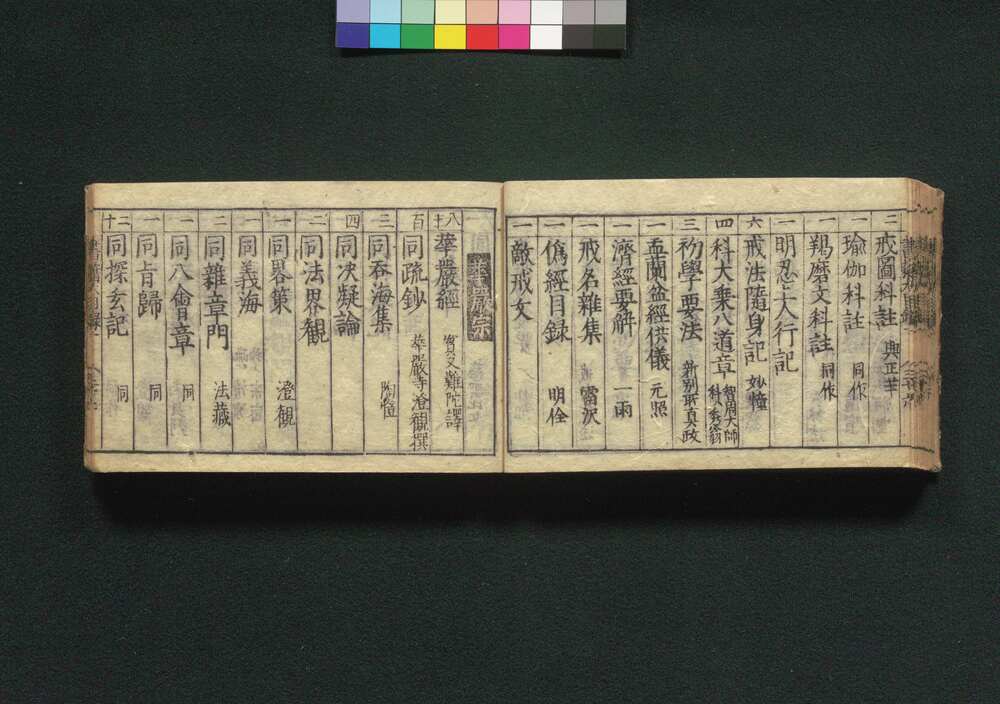 三 戒圖科註 與正菩
一 瑜伽科註 同作
一 羯磨文科註 同作
一 明忍大行記
六 戒法隨身記 妙幢
四 科大乗八道章 智周大師
三 初學要法 新別所真政
一 盂蘭盆經供儀 元照
一 濟經要解 一雨
一 戒名雜集 雷沢
一 偽經目録 明佺
一 敵戒文
華嚴宗
八十 華嚴經 實叉難陀譯
百 同疏鈔 華嚴寺澄観撰
三 同呑海集
四 同决凝論
二 同法界観
一 同畧策 澄観
一 同義海
二 同雜章門 法藏
一 同八會章 同
一 同㫖歸 同
二十 同探玄記 同